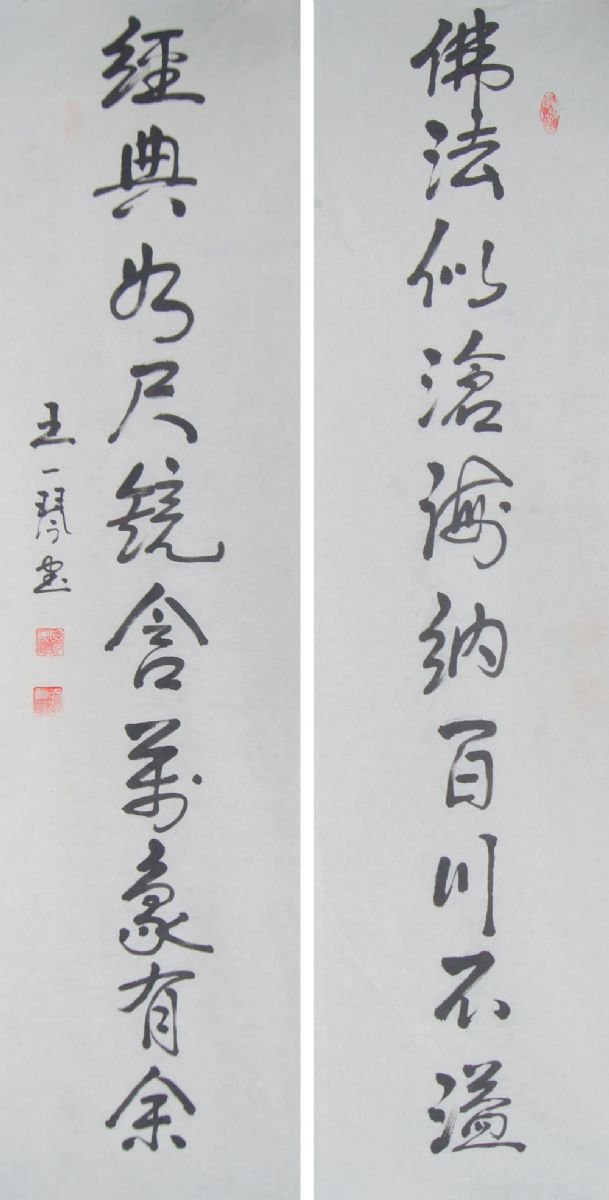 佛法似滄海納百川不溢
經典如尺鏡含萬象有余
王一琴書